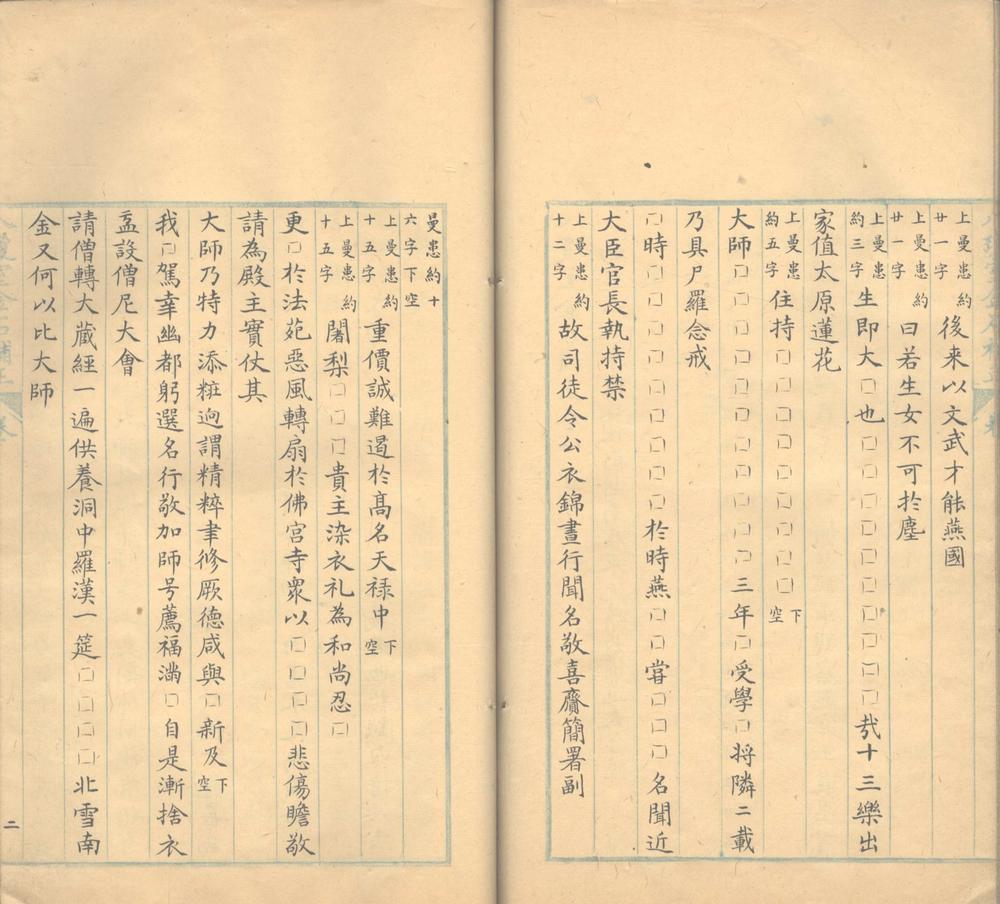 上曼患約廿一字後来以文武才能燕國
上曼患約廿一字曰若生女不可於塵
上曼患約三字生即大□也□□□□□□□□□□哉十三樂出
家值太原蓮花
上曼患約五字住持□□□□□□□□□下空
大師□□□□□□□□□□□三年□受學□将隣二載
乃具尸羅念戒
□時□□□□□□□□□於時燕□□甞□□□名聞近
大臣官長執持禁
上曼患約十二字故司徒令公衣錦晝行聞名敬喜齎簡署副
曼患約十六字下空
上曼患約十五字重價誠難遏於髙名天禄中下空
上曼患約十五字闍梨□□□貴主染衣礼為和尚忍□
更□於法苑惡風轉扇於佛宫寺衆以□□□□悲傷瞻敬
請為殿主實仗其
大師乃特力添粧逈謂精粹聿修厥德咸與□新及下空
我□駕幸幽都躬選名行敬加師号薦福滿□自是漸捨衣
盂設僧尼大㑹
請僧轉大蔵經一遍供養洞中羅漢一筵□□□□北雪南
金又何以比大師
二